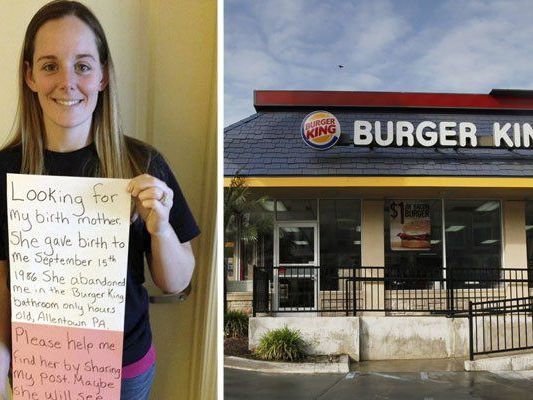 Looking for
my birth mother.
She gave birth to
me September 15th
1986 She abandoned
me in the Burger King
bathroom only hours
old, Allentown PA.
Please help me
find her by sharing
my post. Maybe
she will see
BURGER
KING
BURGER KIN
$1
BURGER